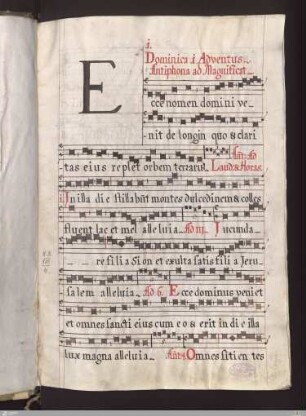 1.
Dominica i Adventus
Antiphona ad Magnificat
E
cce nomen domini ve
nit de longin quo & clari
tas eius replet orbem terrarum. Ant. Ad
Laud. & Horas.
In illa di e stillabūt montes dulcedinem & colles
fluent lac et mel alleluia. Ad iii. Iucunda
re fili a Sion et exulta satis fili a Jeru
salem alleluia. Ad 6. E cce dominus veni et
et omnes sancti eius cum e o & erit in di e illa
lux magna alleluia. Ant. Omnes siti en tes